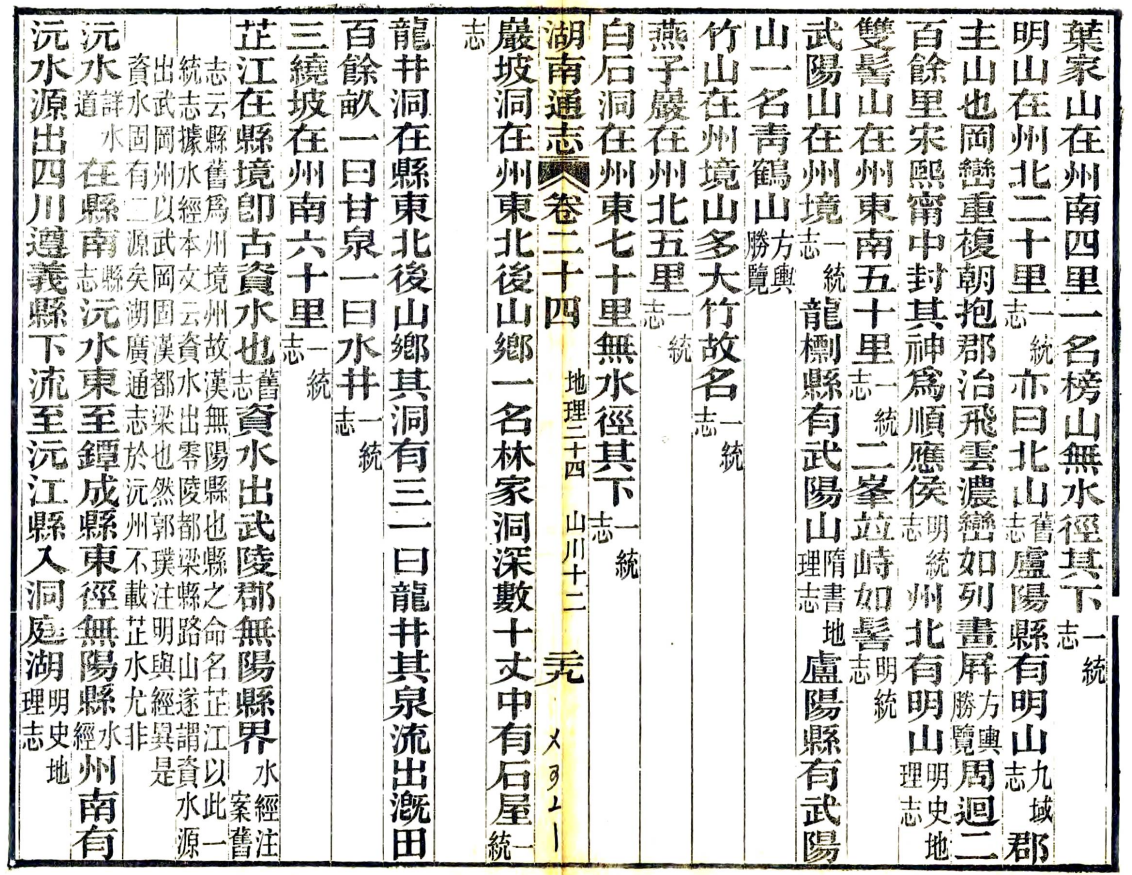 葉家山在州南四里一名榜山無水徑其下一統志
明山在州北二十里一統志亦曰北山舊志盧陽縣有明山九域志郡
主山也岡巒重複朝抱郡治飛雲濃巒如列畫屛方輿勝覽周迴二
百餘里宋熙甯中封其神爲順應侯明統志州北有明山明史地理志
雙髻山在州東南五十里一統志二峯竝峙如髻明統志
武陽山在州境一統志龍檦縣有武陽山隋書地理志盧陽縣有武陽
山一名靑鶴山方輿勝覽
竹山在州境山多大竹故名一統志
燕子巖在州北五里一統志
白石洞在州東七十里無水徑其下一統志
湖南通志 卷二十四 地理二十四 山川十二
巖坡洞在州東北後山鄕一名林家洞深數十丈中有石屋一統
志
龍井洞在縣東北後山鄕其洞有三一曰龍井其泉流出漑田
百餘畝一曰甘泉一曰水井一統志
三繞坡在州南六十里一統志
芷江在縣境卽古資水也舊志資水出武陵郡無陽縣界水經注案舊
志云縣舊爲州境州故漢無陽縣也縣之命名芷江以此一
統志據水經本文云資水出零陵都梁縣路山遂謂資水源
出武岡州以武岡固漢都梁也然郭璞注明與經異是
資水固有二源矣湖廣通志於沅州不載芷水尤非
沅水詳水道在縣南縣志沅水東至鐔成縣東徑無陽縣水經州南有
沅水源出四川遵義縣下流至沅江縣入洞庭湖明史地理志